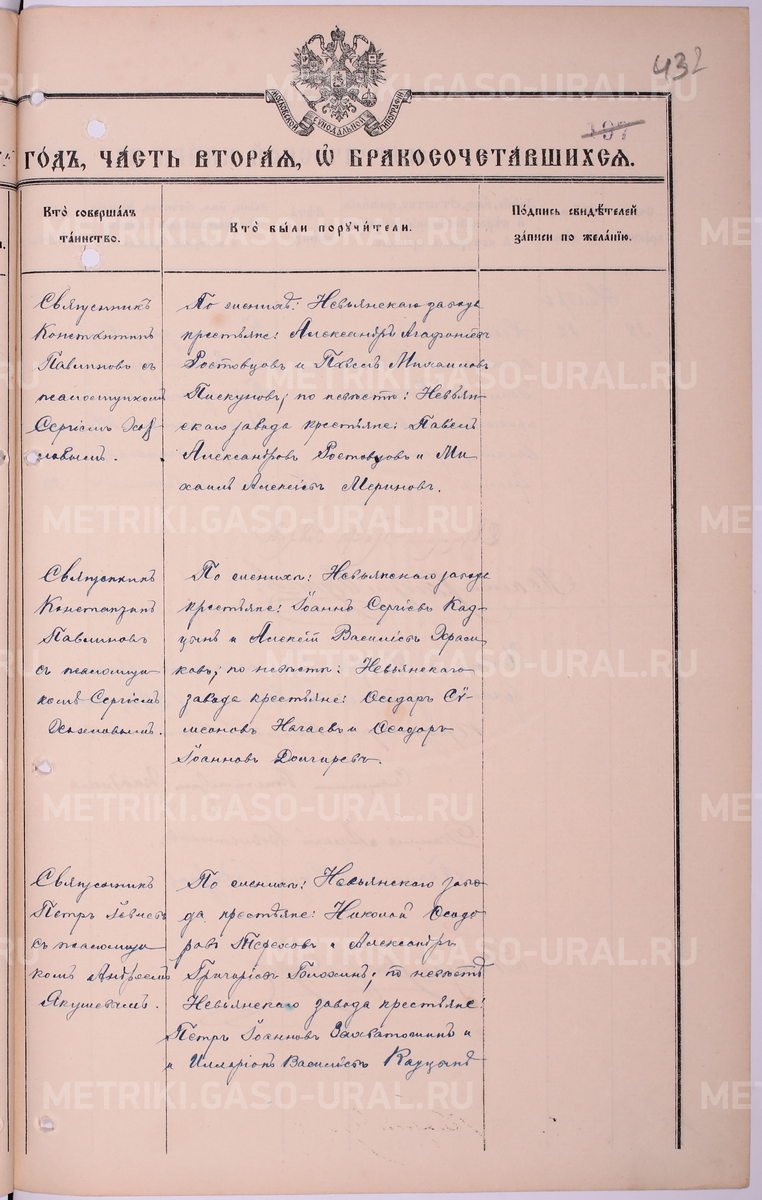 432
МОСКОВСКОЙ СѴНОДАЛЬНОЙ ТИПОГРАФІИ
197
ГО́ДЪ, ЧА́СТЬ ВТОРА́Я, Ѿ БРАКОСОЧЕТА́ВШИХСЯ.
Кто̀ соверша́лъ
та́инство.
Кто̀ бы́ли поручи́тели.
По́дпись свидѣ́телей
за́писи по жела́нію.
Священникъ
Константинъ
Павлиновъ съ
псаломщикомъ
Сергіемъ
.
По женихѣ: Невьянскаго завода
крестьяне: Александръ Агафоновъ
Ростовцовъ и Павелъ Михаиловъ
Пискуновъ; по невѣстѣ: Невьян-
скаго завода крестьяне: Павелъ
Александровъ Ростовцовъ и Ми-
хаилъ Алексѣевъ Мериновъ.
Священникъ
Константинъ
Павлиновъ
съ псаломщи-
комъ Сергіемъ
По женихѣ: Невьянскаго завода
крестьяне: Іоаннъ Сергіевъ Кад-
цынъ и Алексій Василіевъ
по невѣстѣ: Невьянскаго
завода крестьяне: Ѳеодоръ Сѵ-
меоновъ Нагаевъ и Ѳеодоръ
Іоанновъ Долгиревъ.
Священникъ
Петръ
съ псаломщи-
комъ Андреемъ
Якушевымъ.
По женихѣ: Невьянскаго заво-
да крестьяне: Николай Ѳеодо-
ровъ Тереховъ и Александръ
Григоріевъ по невѣстѣ
Невьянскаго завода крестьяне:
Петръ Іоанновъ и
и Илларіонъ Василіевъ
METRIKI.GASO-URAL.RU